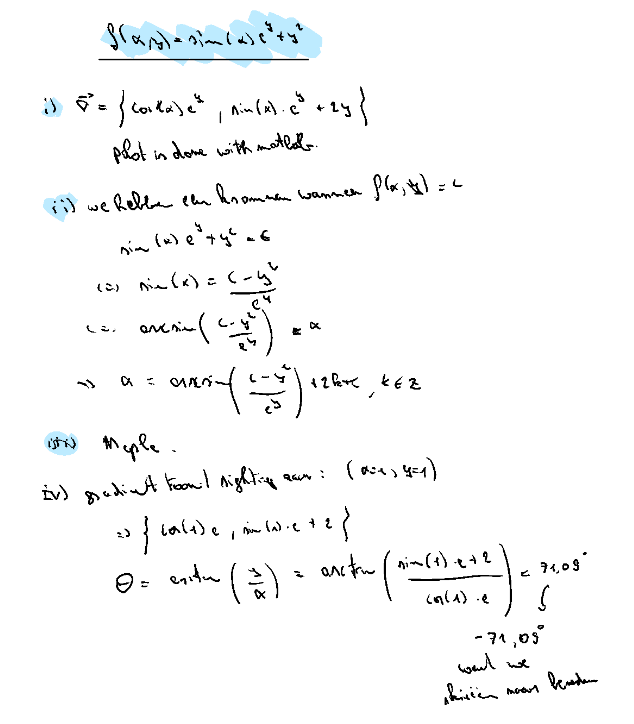 f(x,y) = sin(x)e^y + y^2
i) ∇ = { cos(x)e^y , sin(x).e^y + 2y }
Plot is done with matlab.
ii) we hebben een krommen wanneer f(x,y) = c
sin(x)e^y + y^2 = c
(=) sin(x) = (c - y^2)/e^y
(=) arcsin((c - y^2)/e^y) = x
=> x = arcsin((c - y^2)/e^y) + 2kπ , k ∈ Z
iii) Maple.
iv) gradient toont richting aan : (x=1, y=1)
=> { cos(1)e , sin(1).e + 2 }
θ = arctan(y/x) = arctan((sin(1).e+2)/(cos(1).e)) = 71,09°
-71,09°
want we
naar beneden